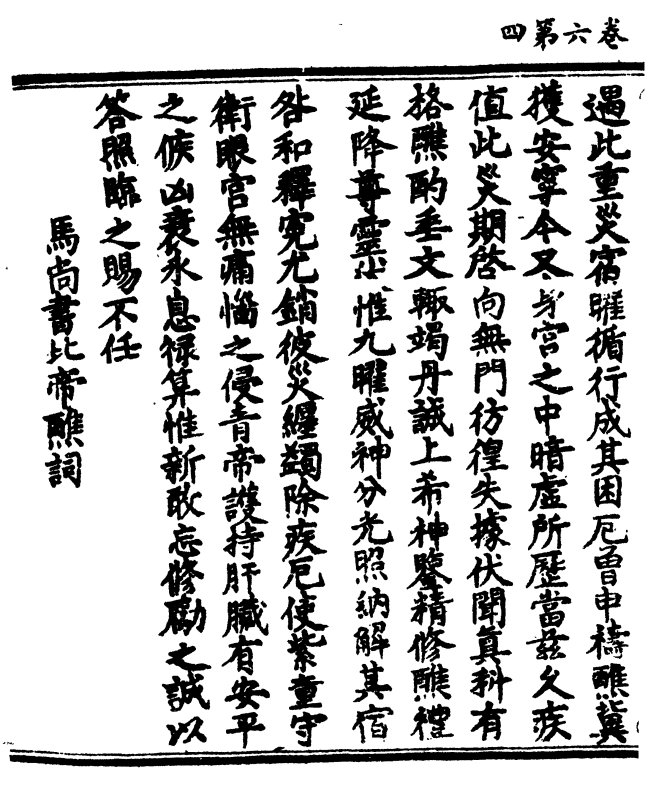 卷六第四
遇此重災宿曜循行成其困厄曾申禱醮冀
獲安寧今又身宮之中暗虛所歷當茲久疾
值此災期啓向無門彷徨失據伏聞真科有
格醮酌垂文輙竭丹誠上希神鑒精修醮禮
延降尊靈伏惟九曜威神分光照納解其宿
咎和釋寃尤銷彼災纏蠲除疾厄使紫童守
衛眼宮無痛惱之侵青帝護持肝臟有安平
之候凶衰永息祿算惟新敢忘修勵之誠以
答照臨之賜不任
馬尚書北帝醮詞